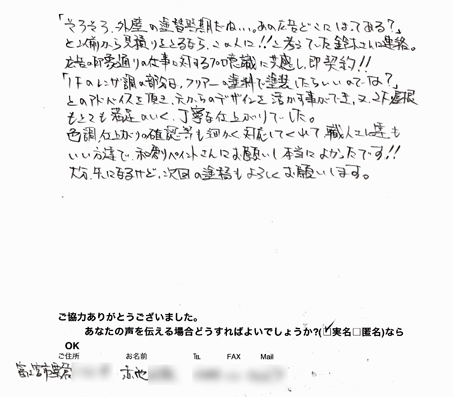 「そろそろ、外壁の塗替時期だねぃ。あの広告どこにはってある?」
と以前から見積りをとるなら、この人に!!と考えていた鈴木さんに連絡。
広告の印象通りの仕事に対するプロ意識に共感し、即契約!!
「1Fのレンガ調の部分は、クリアーの塗料で塗装したらいいのでは?」
とのアドバイスを頂き、元からのデザインを活かす事ができ、又、2F、屋根
もとても満足のいく、丁寧な仕上がりでした。
色調、仕上がりの確認等も細かく対応してくれて、職人さん達も
いい方達で、和創ペイントさんにお願いし本当によかったです!!
大分、先になるけど、次回の塗替もよろしくお願いします。
ご協力ありがとうございました。
あなたの声を伝える場合どうすればよいでしょうか?(☑実名□匿名)なら
OK
ご住所 お名前 ℡ FAX Mail
富士宮市